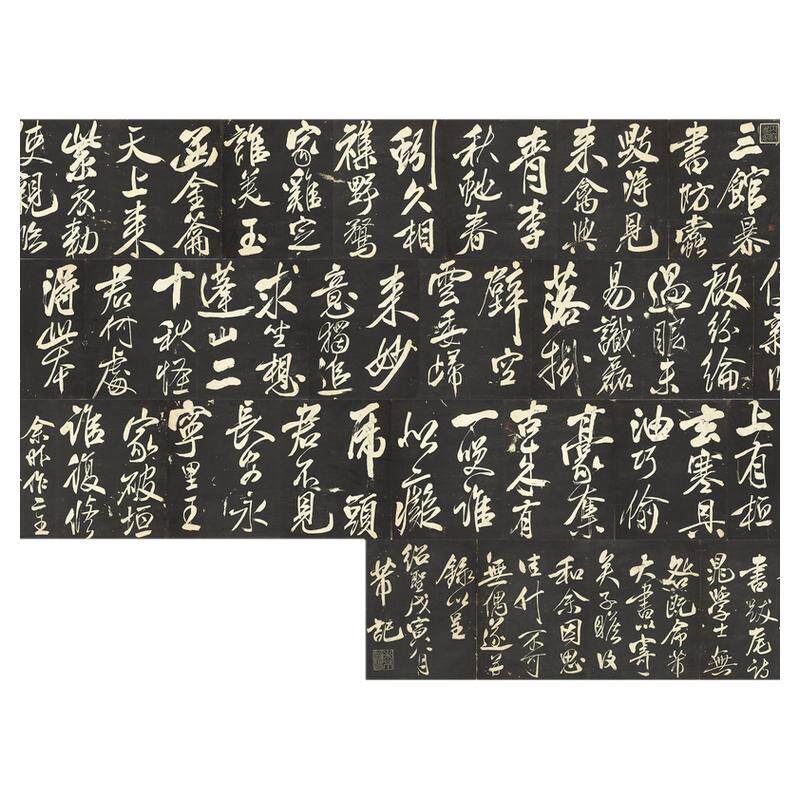 三館暴
書防蠹
毀得見
來禽與
青李
秋虵春
蚓久相
雜野鶩
家雞定
誰美玉
函金籥
天上來
紫衣勅
使親臨
啟紛綸
過眼未
易識磊
落掛
壁空
雲委歸
來妙
意獨追
求坐想
蓬山二
十秋怪
君何處
得此本
上有桓
玄寒具
油巧偷
豪奪
古來有
一笑誰
似癡
虎頭
君不見
長安永
寧里王
家破垣
誰復修
余昨作二王
書跋尾詩
晁學士無
咎既命芾
大書以寄
矣子瞻復
和余因思
佳什不可
無偶遂并
錄以呈
紹聖戊寅八月
芾記